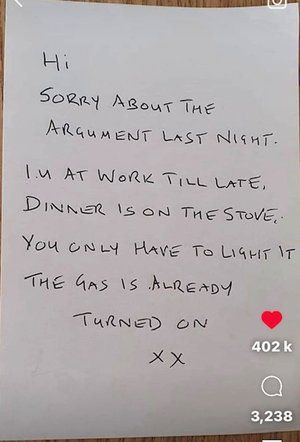 Hi
SORRY ABOUT THE
ARGUMENT LAST NIGHT.
I.M AT WORK TILL LATE,
DINNER IS ON THE STOVE,
YOU ONLY HAVE TO LIGHT IT
THE GAS IS ALREADY
TURNED ON
XX
402 k
3,238